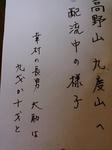 高野山 九度山へ
配流中の様子
幸村の長男 大助は
九才か十才と